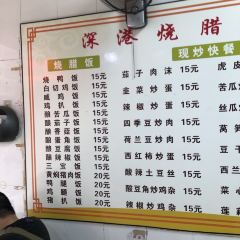 深港烧腊
烧腊饭
烧鸭饭 15元
白切鸡饭 15元
咸鸡饭 15元
鸡扒饭 15元
酿苦瓜饭 15元
酿茄子饭 15元
酿香菇饭 15元
酿蛋角饭 15元
酿豆腐饭 15元
酿辣椒饭 15元
三宝饭 15元
黄焖猪肉饭 20元
鸭腿饭 20元
鸡腿饭 20元
猪扒饭 20元
现炒快餐
茄子肉沫 15元
韭菜炒蛋 15元
辣椒炒蛋 15元
四季豆炒肉 15元
荷兰豆炒肉 15元
西红柿炒蛋 15元
酸辣土豆丝 15元
酸豆角炒鸡杂 15元
辣椒炒鸡杂 15元
虎皮
苦瓜
丝瓜
莴笋
西